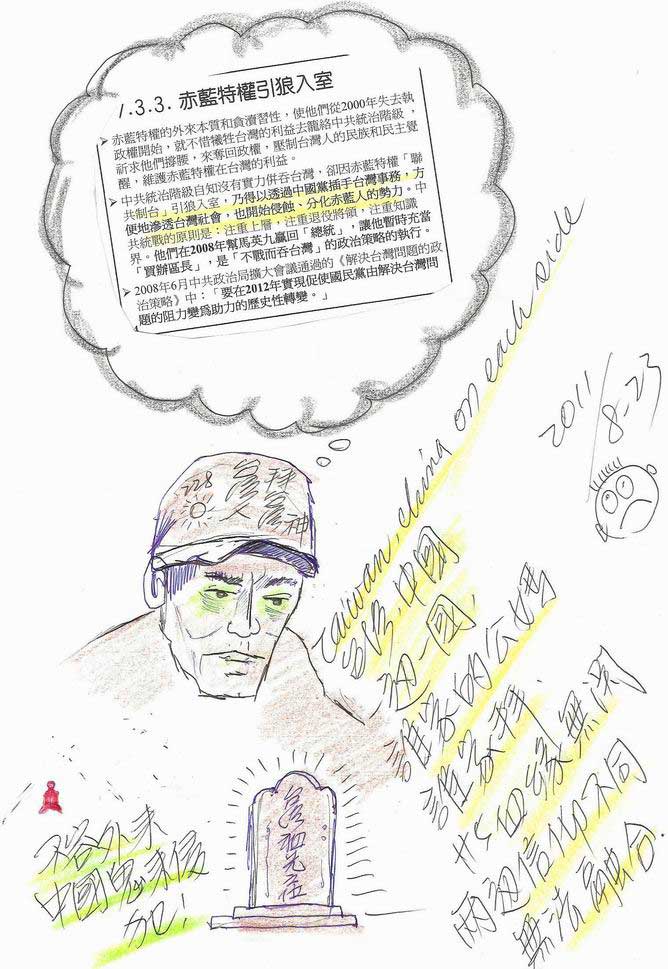 1.3.3. 赤藍特權引狼入室
➢ 赤藍特權的外來本質和貪瀆習性，使他們從2000年失去執
政權開始，就不惜犧牲台灣的利益去籠絡中共統治階級，
祈求他們撐腰，來奪回政權，壓制台灣人的民族和民主覺
醒，維護赤藍特權在台灣的利益。
➢ 中共統治階級自知沒有實力併吞台灣，卻因赤藍特權「聯
共制台」引狼入室，乃得以透過中國黨插手台灣事務，方
便地滲透台灣社會，也開始侵蝕、分化赤藍人的勢力。中
共統戰的原則是：注重上層，注重退役將領，注重知識
界。他們在2008年幫馬英九贏回「總統」，讓他暫時充當
「買辦區長」，是「不戰而吞台灣」的政治策略的執行。
➢ 2008年6月中共政治局擴大會議通過的《解決台灣問題的政
治策略》中：「要在2012年實現促使國民黨由解決台灣問
題的阻力變爲助力的歷史性轉變。」
Taiwan, china on each side
2011/8-23
228
台灣.中國
一國,
誰家的公媽
誰家拜.
兩邊信仰不同
無法融合.
不容外來
中國鬼來侵
犯!